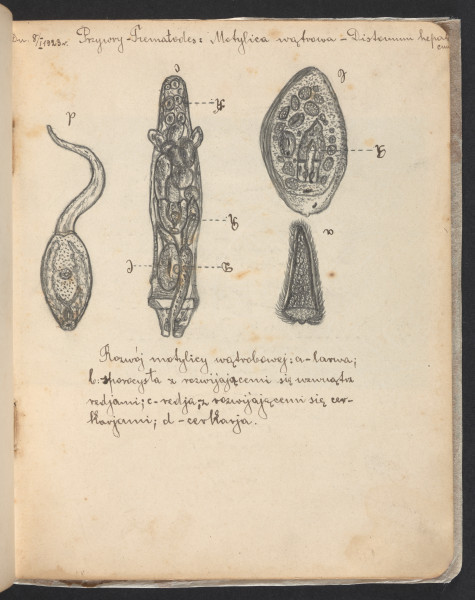 Dn. 8/I 1923r. Przywry-Trematodes: Motylica wątrowa - Distomum hepati
cum
d
c
b
a
R
R
R
Rozwój motylicy wątrobowej: a-larwa;
b: sporocysta z rozwijającemi się wewnątrz
redjami; c-redja, z rozwijającemi się cer-
karjami; d - cerkarja.